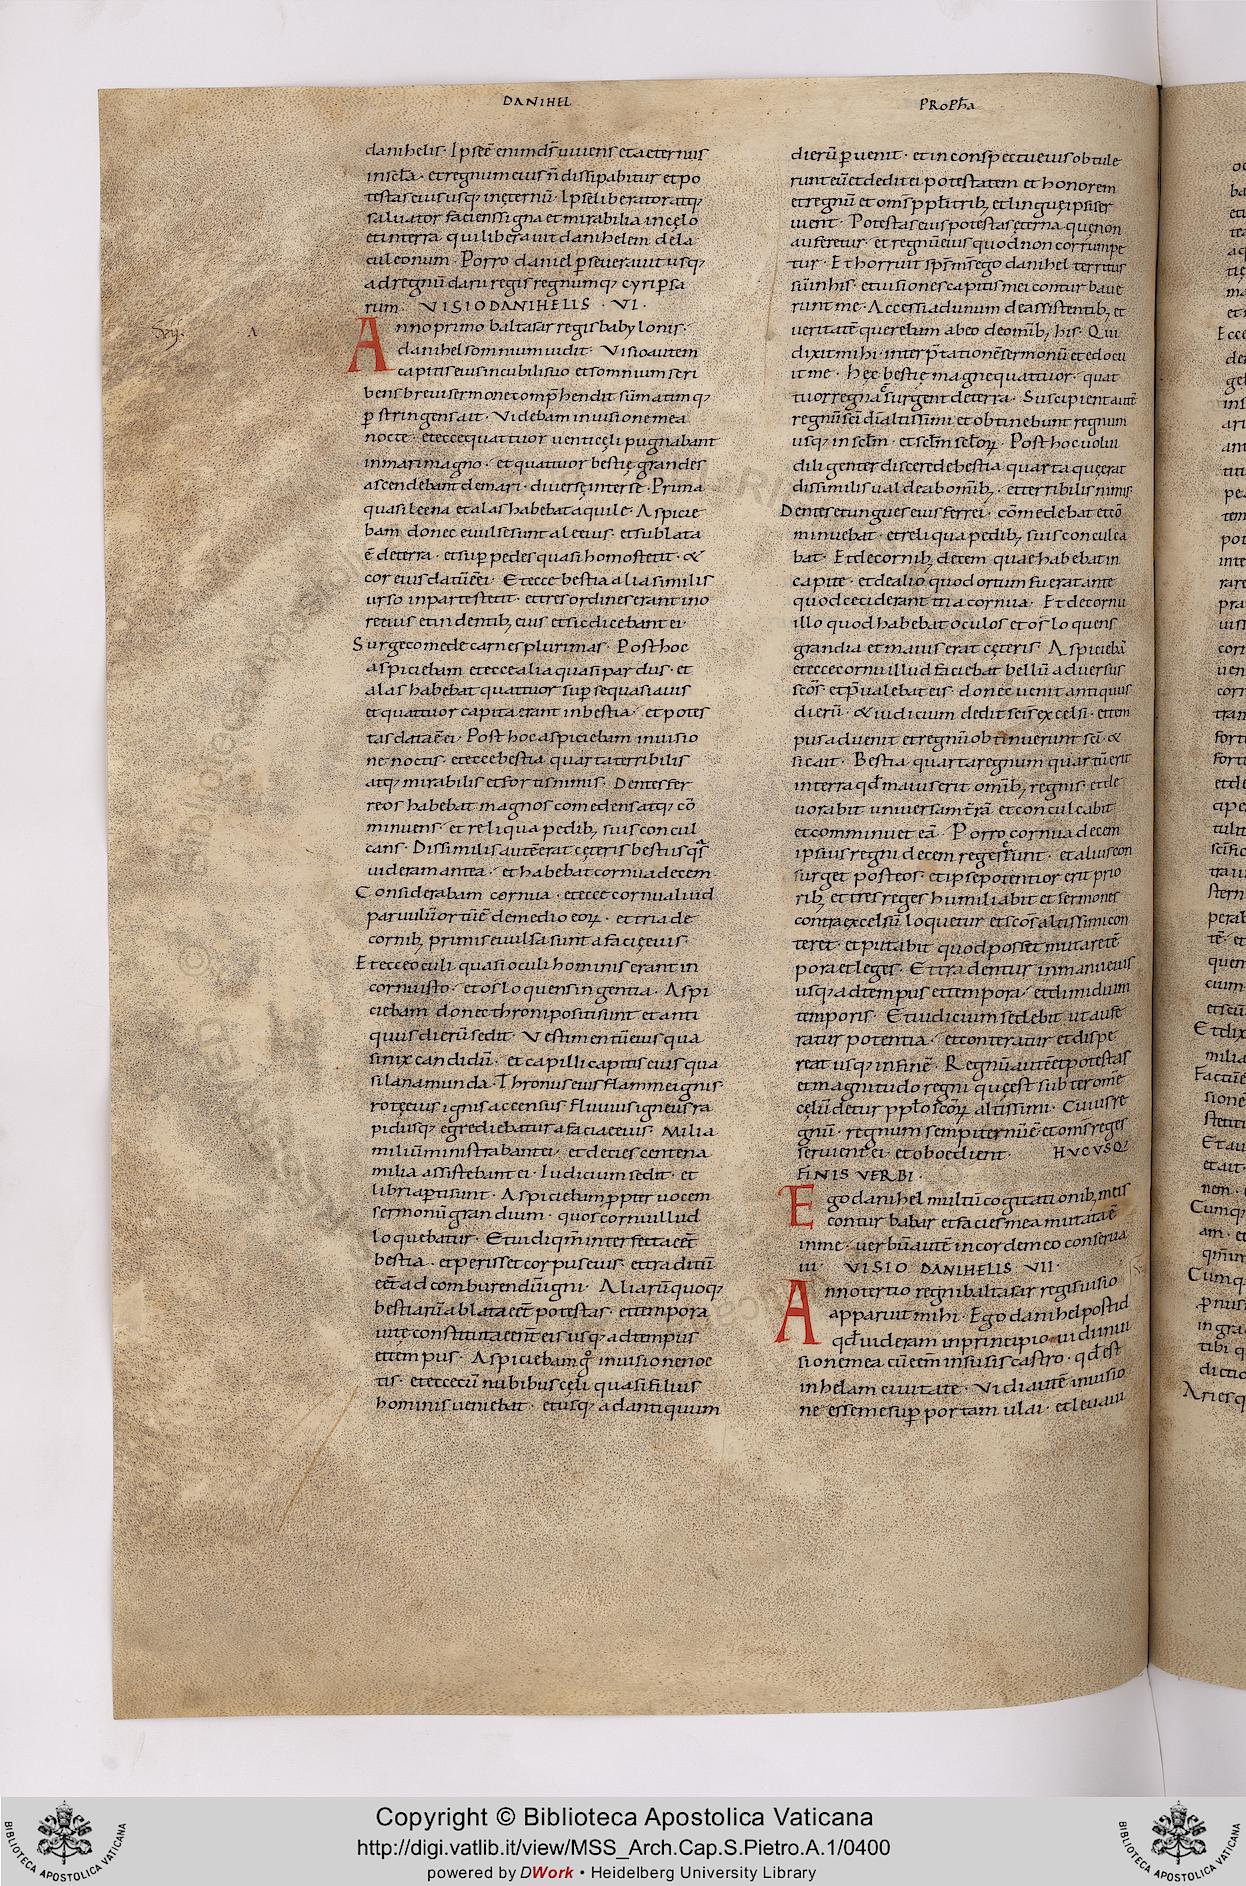 DANIHEL
PROPħA
danihelis · Ipse ē enim dſ̄ uiuens et aeternus
in sc̄la · et regnum eius n̄ dissipabitur et po
testas eius usq; in ęternū · Ipse liberator atq;
saluator faciens signa et mirabilia in cęlo
et in terra · qui liberauit danihelem de la
cu leonum · Porro daniel p̱seuerauit usq;
ad regnū darii regis regnumq; cyri p̱sa
rum · VISIO DANIHELIS · VI ·
Anno primo baltasar regis babylonis ·
danihel somnium uidit · Visio autem
capitis eius in cubili suo et somnium scri
bens breui sermone comp̄hendit sūmatimq;
p̱stringens ait · Videbam in uisione mea
nocte · et ecce quattuor uenti cęli pugnabant
in mari magno · et quattuor bestię grandes
ascendebant de mari · diuersę inter se · Prima
quasi leena et alas habebat aquilę · Aspicie
bam donec euulsę sunt alę eius · et sublata
ē de terra · et sup̱ pedes quasi homo stetit · &
cor eius datū ē ei · Et ecce bestia alia similis
urso in parte stetit · et tres ordines erant in o
re eius et in dentib; eius et sic dicebant ei ·
Surge comede carnes plurimas · Post hoc
aspiciebam et ecce alia quasi pardus · et
alas habebat quattuor sup̱ se quasi auis
et quattuor capita erant in bestia · et potes
tas data ē ei · Post hoc aspiciebam in uisio
ne noctis · et ecce bestia quarta terribilis
atq; mirabilis et fortis nimis · Dentes fer
reos habebat magnos comedens atq; cō
minuens · et reliqua pedib; suis concul
cans · Dissimilis autē erat cęteris bestiis qͣs
uideram antea · et habebat cornua decem ·
Considerabam cornua · et ecce cornu aliud
paruulū ortū ē de medio eoꝝ · et tria de
cornib; primis euulsa sunt a facię eius ·
Et ecce oculi quasi oculi hominis erant in
cornu isto · et os loquens ingentia · Aspi
ciebam donec throni positi sunt et anti
quus dierū sedit · Vestimentū eius qua
si nix candidū · et capilli capitis eius qua
si lana munda · Thronus eius flammę ignis ·
rotę eius ignis accensus · Fluuius igneus ra
pidusq; egrediebatur a facie eius · Milia
miliū ministrabant ei · et decies centena
milia assistebant ei · Iudicium sedit · et
libri ap̱ti sunt · Aspiciebam p̱pter uocem
sermonū grandium · quos cornu illud
loquebatur · Et uidi qm̄ interfecta eēt
bestia · et perisset corpus eius · et traditū
eēt ad comburendū igni · Aliarū quoq;
bestiarū ablata eēt potestas · et tempora
uitę constituta eēnt eis usq; ad tempus
et tempus · Aspiciebam gͦ in uisione noc
tis · et ecce cū nubibus cęli quasi filius
hominis ueniebat · et usq; ad antiquum
dierū p̱uenit · et in conspectu eius obtule
runt eū et dedit ei potestatem et honorem
et regnū et oms̄ pp̄li trib; et linguę ipsi ser
uient · Potestas eius potestas ęterna quę non
auferetur · et regnū eius quod non corrumpe
tur · Et horruit sps̄ ms̄ ego danihel territus
sū in his · et uisiones capitis mei conturbaue
runt me · Accessi ad unum de assistentib; et
ueritatē querebam ab eo de omīb; his · Qui
dixit mihi · interp̄tationē sermonū et edocu
it me · Hęę bestię magnę quattuor · quat
tuor regna surgent de terra · Suscipient autē
regnū sc̄i di altissimi et obtinebunt regnum
usq; in sc̄lm̄ · et sc̄lm̄ sc̄loꝝ · Post hoc uolui
diligenter discere de bestia quarta quę erat
dissimilis ualde ab omīb; · et terribilis nimis
Dentes et ungues eius ferrei · cōmedebat et cō
minuebat · et reliqua pedib; suis conculca
bat · Et de cornib; decem quae habebat in
capite · et de alio quod ortum fuerat ante
quod ceciderant tria cornua · Et de cornu
illo quod habebat oculos et os loquens
grandia et maius erat cęteris · Aspiciebā
et ecce cornu illud faciebat bellū aduersus
scōs · et p̄ualebat eis · donec uenit antiquus
dierū · & iudicium dedit sc̄is excelsi · et tem
pus aduenit et regnū obtinuerunt sc̄i · &
sic ait · Bestia quarta regnum quartū erit
in terra qđ maius erit omīb; regnis · et de
uorabit uniuersam t̄rā et conculcabit
et comminuet eā · Porro cornua decem
ipsius regni decem reges erunt · et alius con
surget post eos · et ipse potentior erit prio
rib; et tres reges humiliabit et sermones
contra excelsū loquetur et scōs altissimi con
teret · et putabit quod posset mutare tē
pora et leges · Et tradentur in manu eius
usq; ad tempus et tempora · et dimidium
temporis · Et iudicium sedebit ut aufe
ratur potentia · et conteratur et dispe
reat usq; in finē · Regnū autē et potestas
et magnitudo regni quę est subter omē
cęlū detur pp̄lo sc̄oꝝ altissimi · Cuius re
gnū · regnum sempiternū ē · et oms̄ reges
seruient ei · et oboedient · HVCVSQ;
FINIS VERBI ·
Ego danihel multū cogitationib; meis
conturbabar et facies mea mutata ē
in me · uerbū autē in corde meo conserua
ui · VISIO DANIHELIS VII ·
Anno tertio regni baltasar regis uisio
apparuit mihi · Ego danihel post id
qđ uideram in principio · uidi in ui
sione mea cū eēm in susis castro · qđ est
in helam ciuitate · Vidi autē in uisio
ne esse me sup̱ portam ulai · et leuaui
Copyright © Biblioteca Apostolica Vaticana
http://digi.vatlib.it/view/MSS_Arch.Cap.S.Pietro.A.1/0400
powered by DWork • Heidelberg University Library
BIBLIOTECA APOSTOLICA VATICANA
BIBLIOTECA APOSTOLICA VATICANA